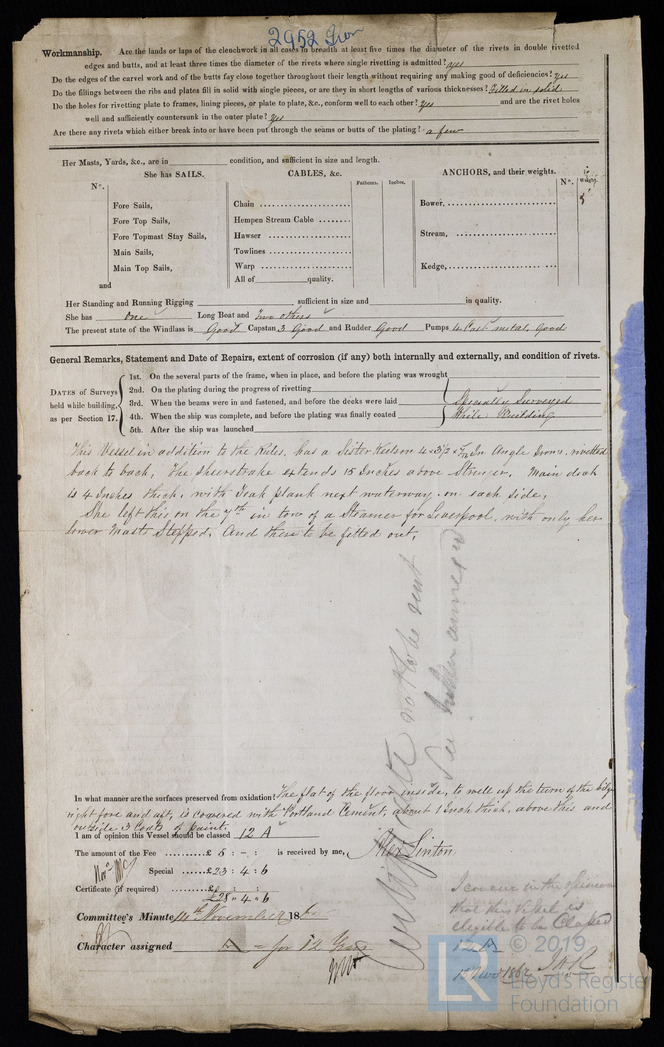 2952 Iron
Workmanship. Are the lands or laps of the clenchwork in all cases in breadth at least five times the diameter of the rivets in double rivetted
edges and butts, and at least three times the diameter of the rivets where single rivetting is admitted? yes
Do the edges of the carvel work and of the butts fay close together throughout their length without requiring any making good of deficiencies? yes
Do the fillings between the ribs and plates fill in solid with single pieces, or are they in short lengths of various thicknesses? Filled in solid
Do the holes for rivetting plate to frames, lining pieces, or plate to plate, &c., conform well to each other? yes and are the rivet holes
well and sufficiently countersunk in the outer plate? yes
Are there any rivets which either break into or have been put through the seams or butts of the plating? a few
Her Masts, Yards, &c., are in condition, and sufficient in size and length.
She has SAILS. CABLES, &c. Fathoms. Inches. ANCHORS, and their weights. Nº.
Nº.
Fore Sails, Chain Bower,
Fore Top Sails, Hempen Stream Cable
Fore Topmast Stay Sails, Hawser Stream,
Main Sails, Towlines
Main Top Sails, Warp Kedge,
and All of quality.
Her Standing and Running Rigging sufficient in size and in quality.
She has one Long Boat and Two others
The present state of the Windlass is Good Capstan 3 Good and Rudder Good Pumps 4 Cast metal, Good
General Remarks, Statement and Date of Repairs, extent of corrosion (if any) both internally and externally, and condition of rivets.
DATES of Surveys held while building, as per Section 17.
1st. On the several parts of the frame, when in place, and before the plating was wrought
2nd. On the plating during the progress of rivetting
3rd. When the beams were in and fastened, and before the decks were laid
4th. When the ship was complete, and before the plating was finally coated
5th. After the ship was launched
Specially Surveyed
While Building
This Vessel in addition to the Rules, has a Sister Keelson 4 x 3½ x 7/12 In. Angle Irons, rivetted
back to back, The sheerstrake extends 15 Inches above Stringer, Main deck
is 4 Inches thick, with Teak plank next waterway, on each side,
She left this on the 7th in tow of a Steamer for Liverpool, with only her
lower Masts Stepped, And there to be fitted out,
not to be sent
In what manner are the surfaces preserved from oxidation? The flat of the floor inside, to well up the turn of the bilge
right fore and aft, is covered with Portland Cement, about 1 Inch thick, above this and
outside 3 Coats of paint,
I am of opinion this Vessel should be classed 12 A
The amount of the Fee £5 : - : is received by me, Alex Linton
Special £23 : 4 : 6
Certificate (if required)
£28 " 4 " 6
Committee's Minute 14th November 186
Character assigned A = for 12 Years
I concur in the opinion
that this Vessel is
eligible to be Classed
12 A
© 2019
LR
Lloyd's Register
Foundation